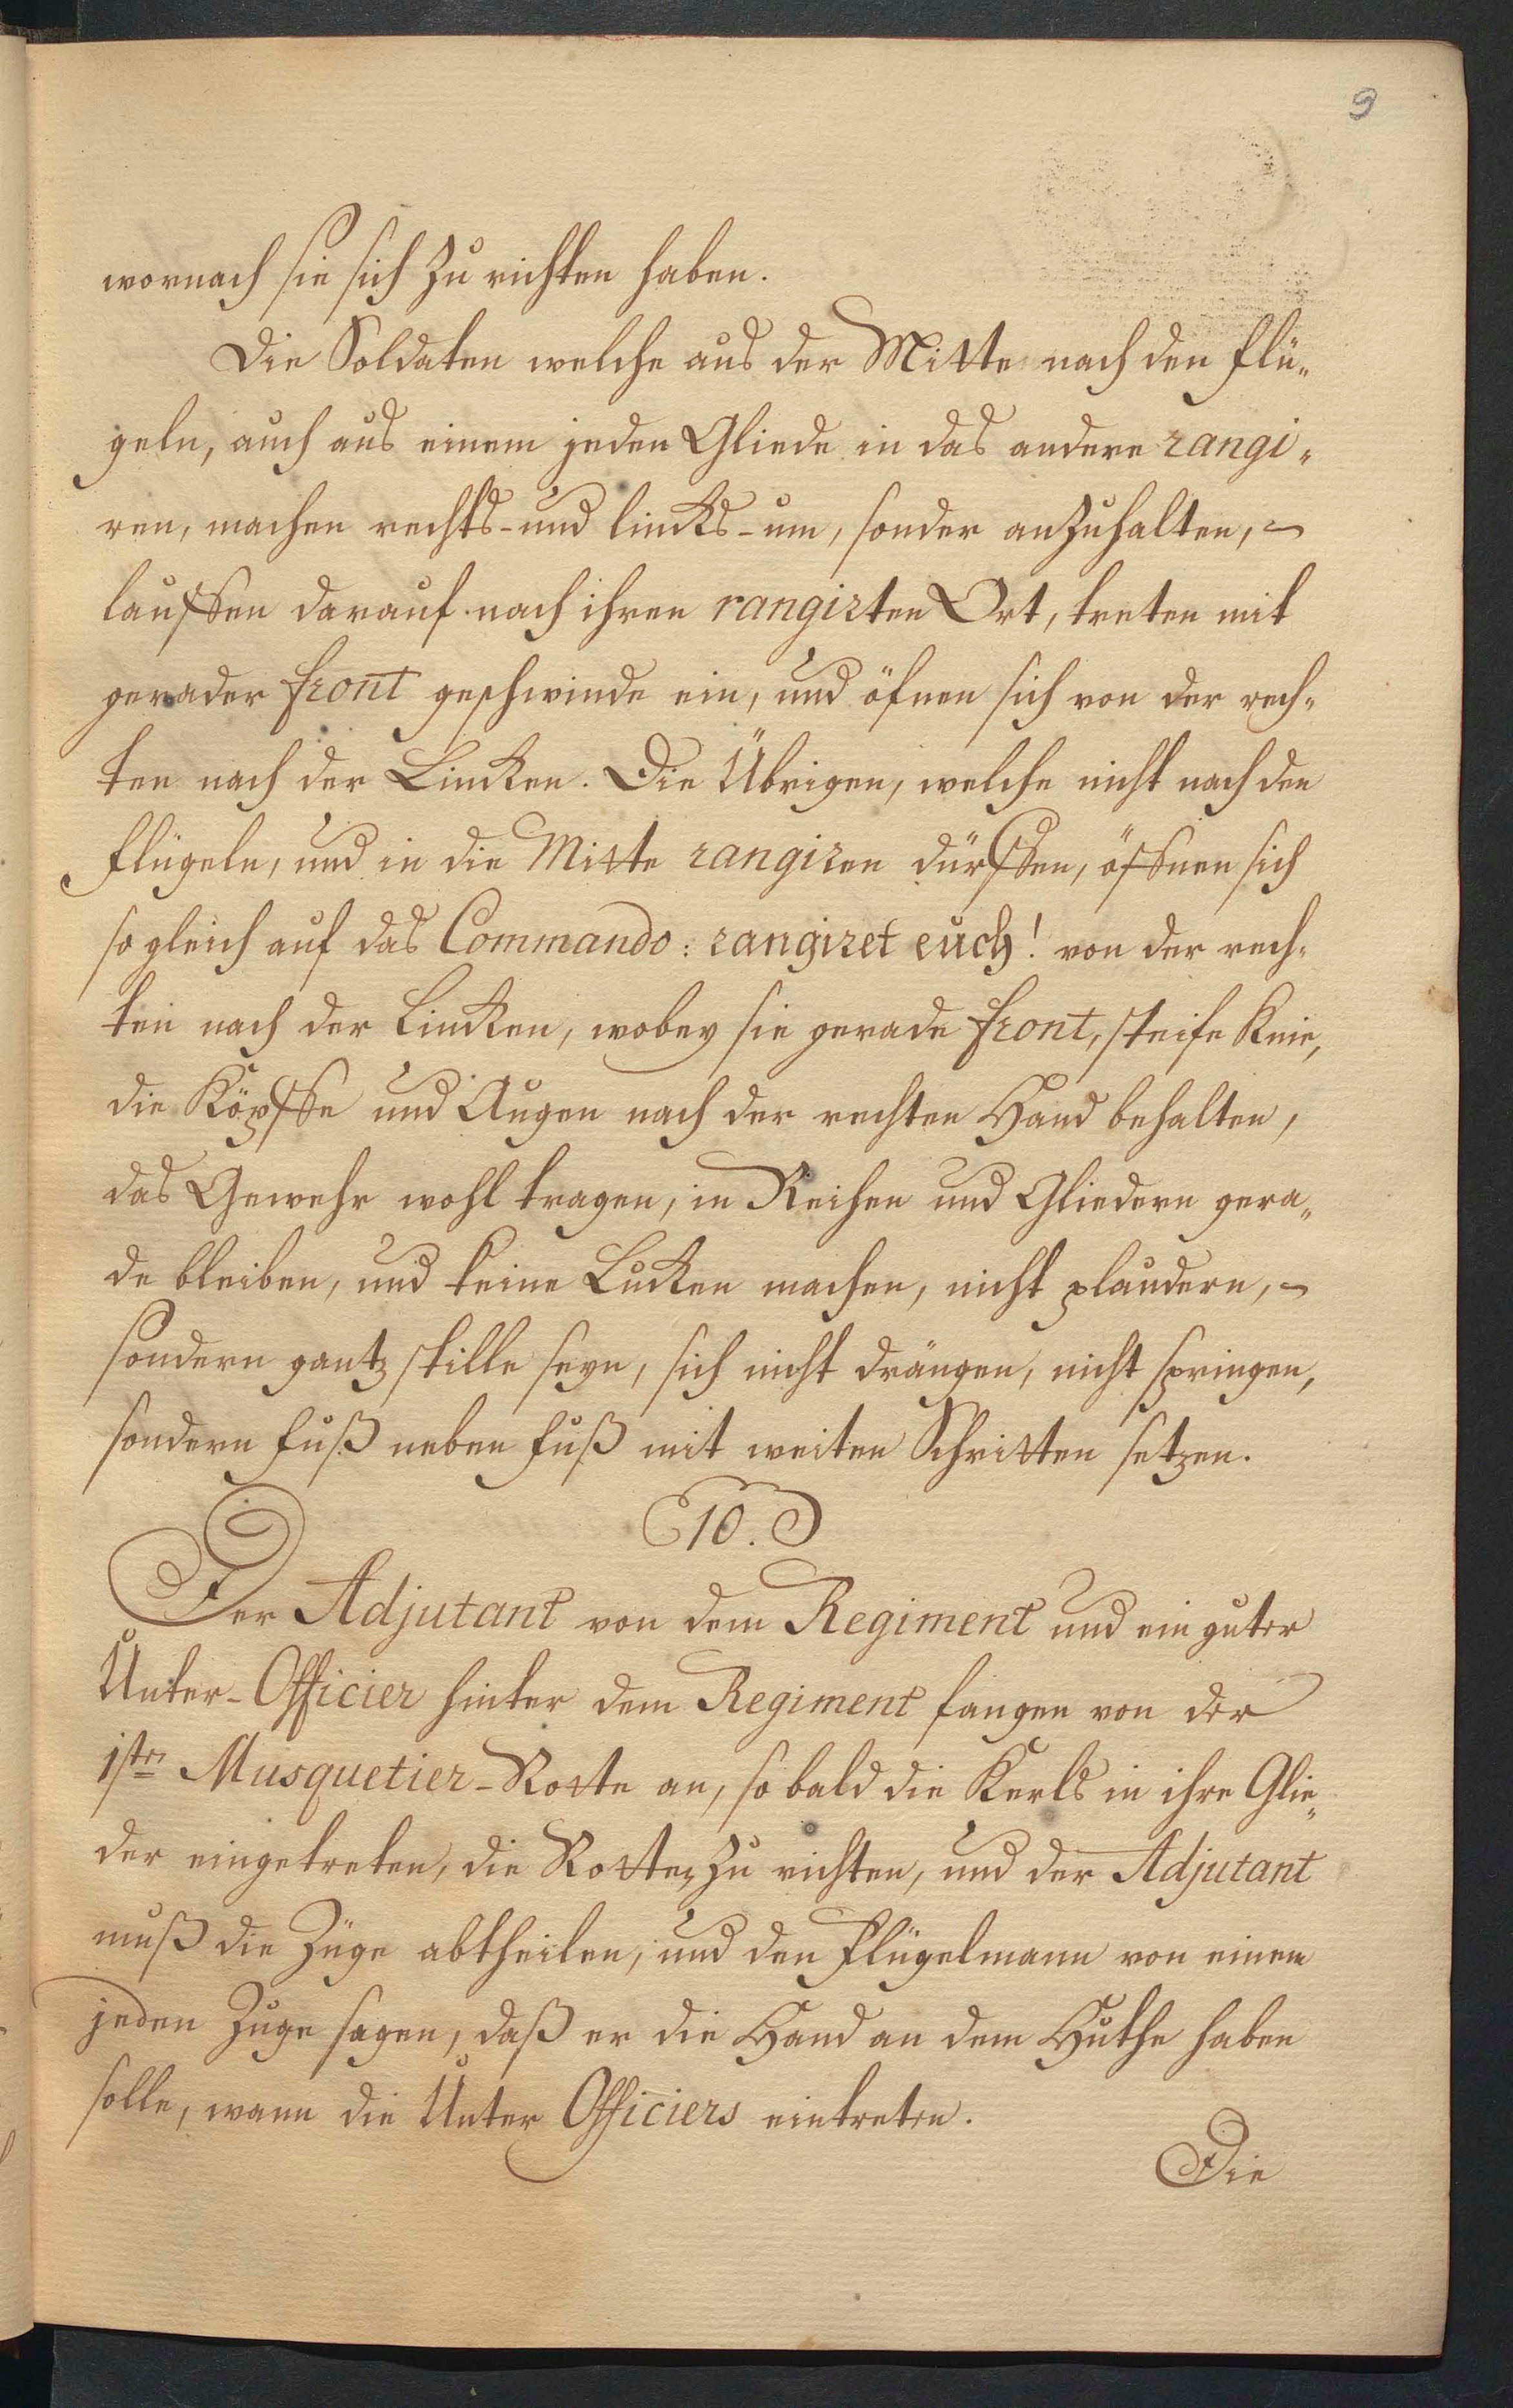 9
wornach sie sich zu richten haben.
Die Soldaten welche aus der Mitte nach den Flü-
geln, auch aus einem jeden Gliede in das andere rangi-
ren, machen rechts- und lincks-um, sonder anzuhalten, -
lauffen darauf nach ihren rangirten Ort, treten mit
gerader front geschwinde ein, und öfnen sich von der rech-
ten nach der Lincken. Die Übrigen, welche nicht nach den
Flügeln, und in die Mitte rangiren dürffen, öffnen sich
so gleich auf das Commando: rangiret euch! von der rech-
ten nach der Lincken, wobey sie gerade front, steife Knie,
die Köpffe und Augen nach der rechten Hand behalten,
das Gewehr wohl tragen, in Reihen und Gliedern gera-
de bleiben, und keine Lucken machen, nicht plaudern, -
sondern gantz stille seyn, sich nicht drängen, nicht springen,
sondern Fuß neben Fuß mit weiten Schritten setzen.
10.
Der Adjutant von dem Regiment und ein guter
Unter-Officier hinter dem Regiment fangen von der
1sten Musquetier-Rotte an, so bald die Kerls in ihre Glie-
der eingetreten, die Rotten zu richten, und der Adjutant
muß die Züge abtheilen, und den Flügelmann von einem
jeden Zuge sagen, daß er die Hand an dem Huthe haben
solle, wann die Unter Officiers eintreten.
Die